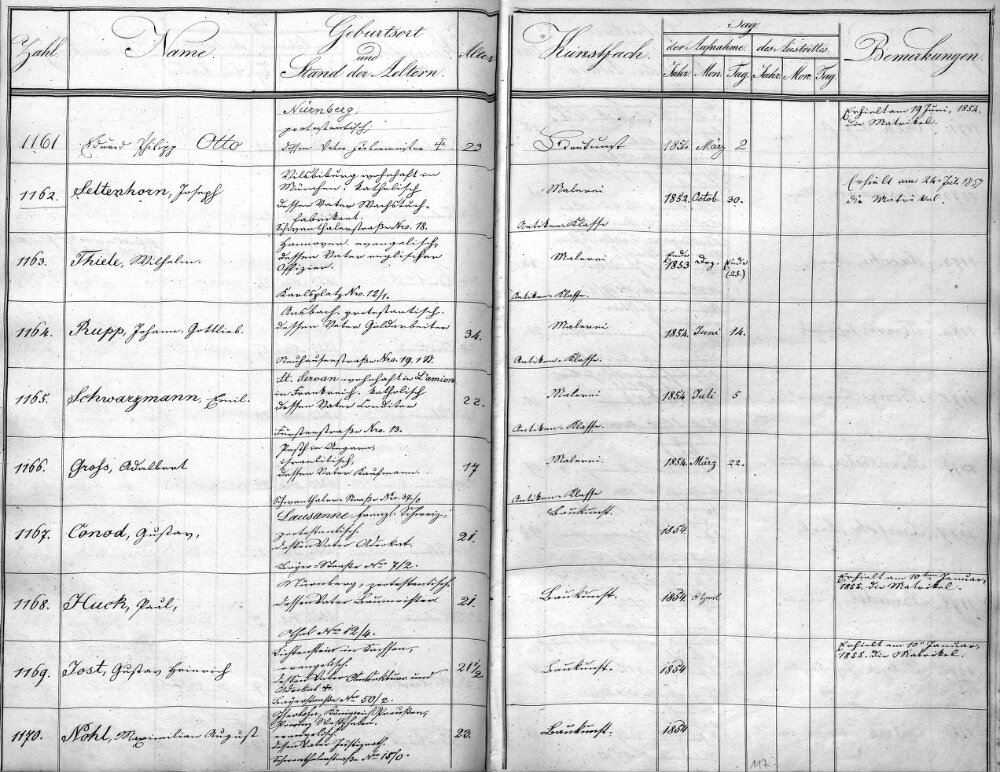 Zahl. Name. Geburtsort und Stand der Aeltern. Alter. Kunstfach. Tag der Aufnahme. des Austrittes. Bemerkungen.
Jahr. Mon. Tag. Jahr. Mon. Tag.
Nürnberg,
protestantisch,
1161 Eduard Philipp Otto
dessen Vater ✝. 23
1851 März 2
Erhielt am 19 Juni, 1854.
die Matrikel.
1162. Settenhorn, Joseph
Vilsbiburg wohnhaft in
München. katholisch
dessen Vater Wachstuch-
fabrikant.
Schwanthalerstraße Nro. 18.
Malerei
Antiken Klasse
1852. Octob. 30.
Erhielt am 24. Juli 1857
die Matrikel.
1163. Thiele, Wilhelm.
Hannover, evangelisch,
dessen Vater englischer
Offizier.
Karlsplatz Nro. 12/1.
Malerei
Antiken-Klasse.
Ende
1853 Dez. Ende
(23.)
1164. Rupp, Johann Gottlieb.
Ansbach, protestantisch.
dessen Vater Goldarbeiter
Neuhauserstraße Nro. 19. 1 St.
34.
Malerei
Antiken-Klasse.
1854. Juni 14.
1165. Schwarzmann, Emil
St. Servan wohnhaft in L'amion
in Frankreich. katholisch
dessen Vater Conditor
Fürstenstraße Nro. 13.
22.
Malerei
Antiken-Klasse.
1854 Juli 5
1166. Gross, Adalbert
Pesth in Ungarn,
israelitisch,
dessen Vater Kaufmann.
Schwanthaler-Straße Nro. 37/0
17
Malerei.
Antiken-Klasse
1854. März 22.
1167. Conod, Gustav,
Lausanne, franz. Schweiz,
protestantisch.
dessen Vater Advokat.
Bayer-Straße No 7/2.
21.
Baukunst.
1854
1168. Huck, Paul,
Nürnberg, protestantisch.
dessen Vater Baumeister
No 12/4.
21.
Baukunst.
1854. April
Erhielt am 10ten Januar,
1855. die Matrikel.
1169. Jost, Gustav Heinrich
Lichtenstein in Sachsen,
evangelisch
dessen Vater und
Advokat ✝.
Bayerstraße No 50/2.
21 1/2
Baukunst.
1854
Erhielt am 10n Januar,
1855. die Matrikel.
1170. Nohl, Maximilian August
Iserlohn, Königreich Preußen,
Provinz Westphalen,
evangelisch
dessen Vater Justizrath.
Schwanthalerstraße No 15/0.
23.
Baukunst.
1854
117